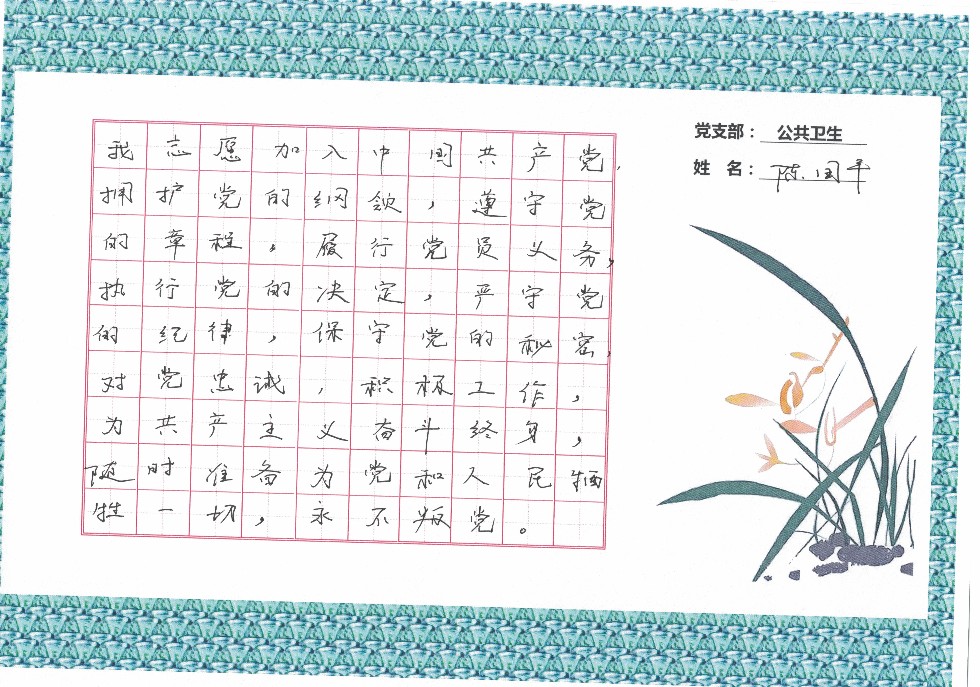 我志愿加入中国共产党，
拥护党的纲领，遵守党
的章程，履行党员义务，
执行党的决定，严守党
的纪律，保守党的秘密，
对党忠诚，积极工作，
为共产主义奋斗终身，
随时准备为党和人民牺
牲一切，永不叛党。
党支部：公共卫生
姓 名：陈国平